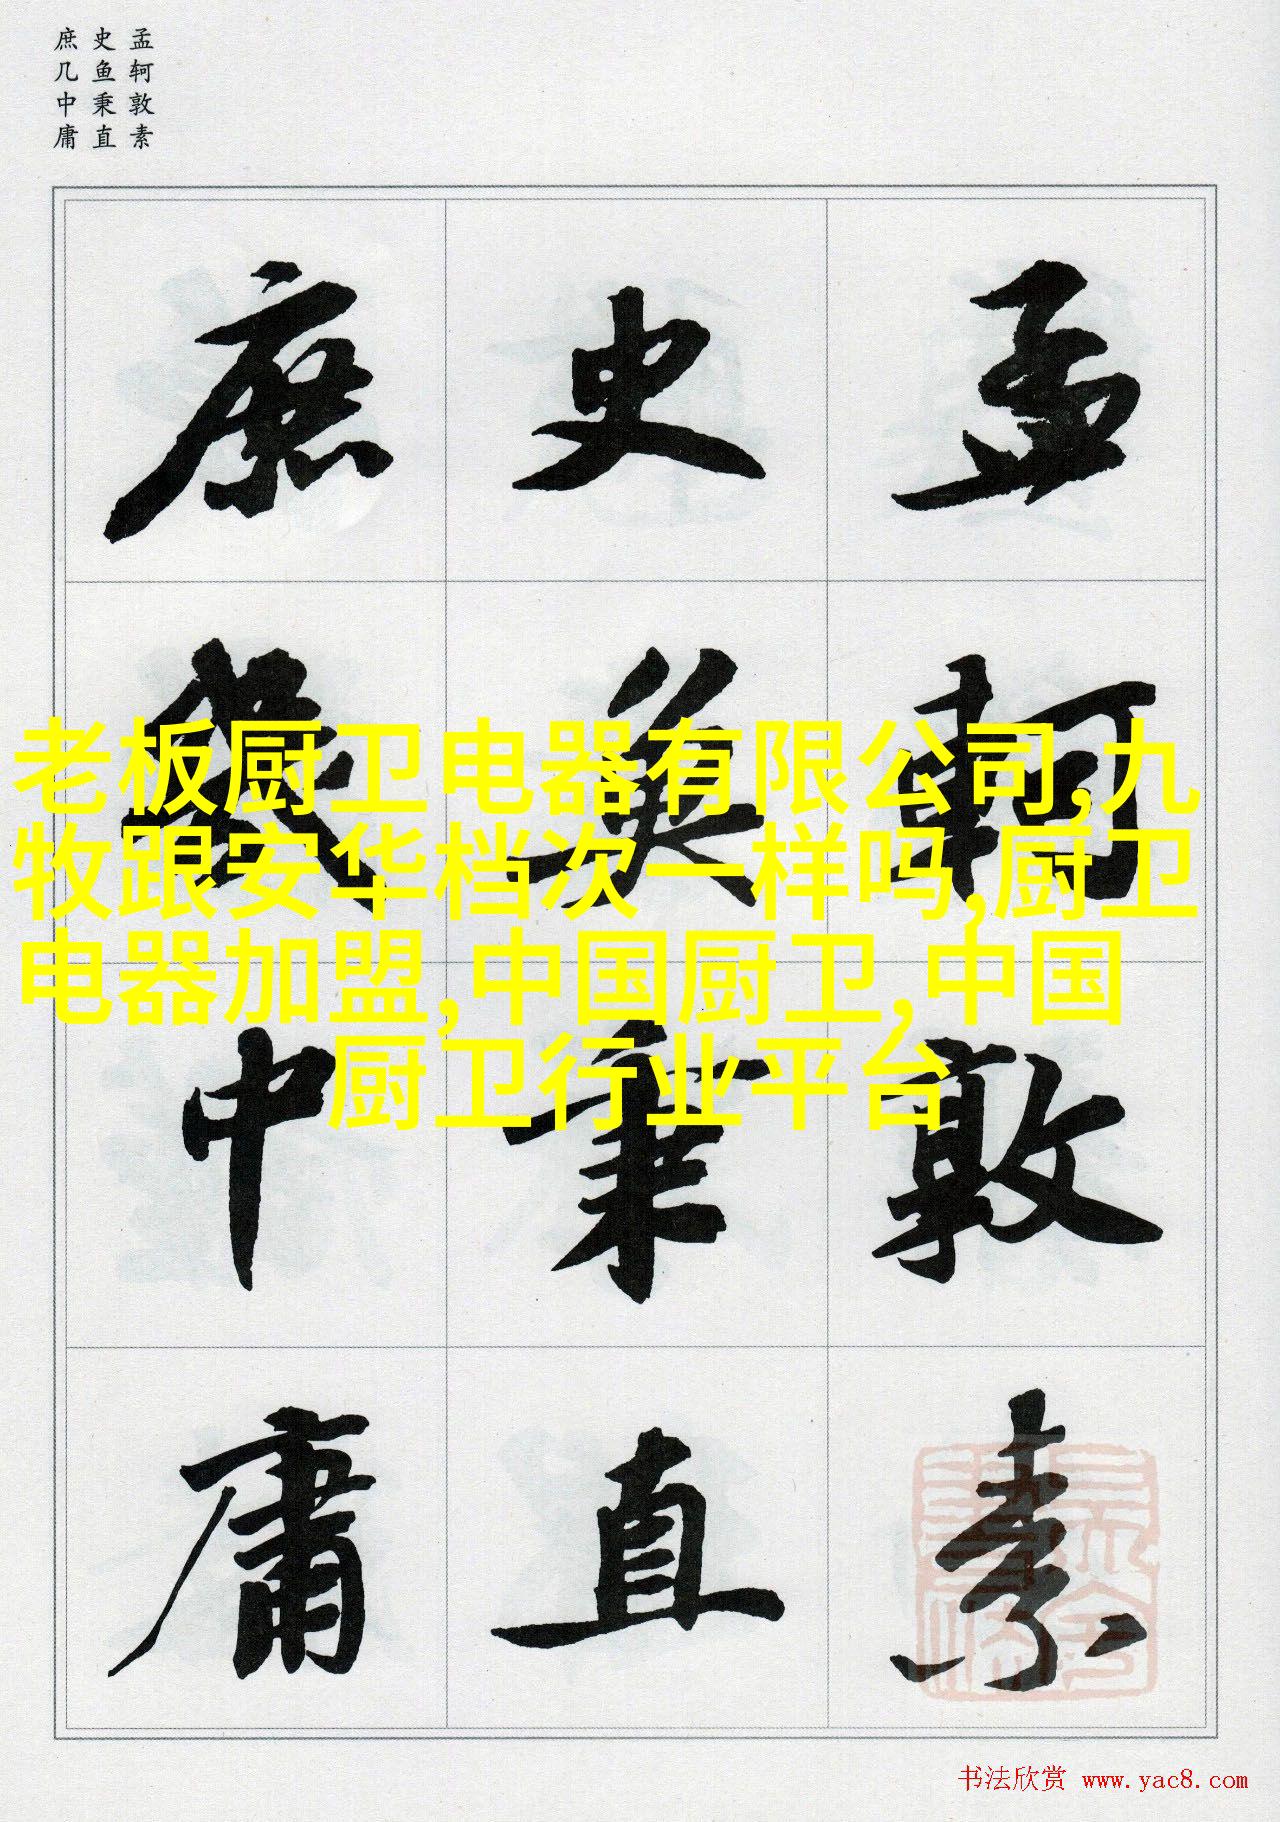 孟轲敦素
史鱼秉直
庶几中庸
孟軻敦素
史魚秉直
庶幾中庸
老板厨卫电器有限公司,九
牧跟安华档次一样吗,厨卫
电器加盟,中国厨卫,中国
厨卫行业平台
书法欣赏 www.yac8.com